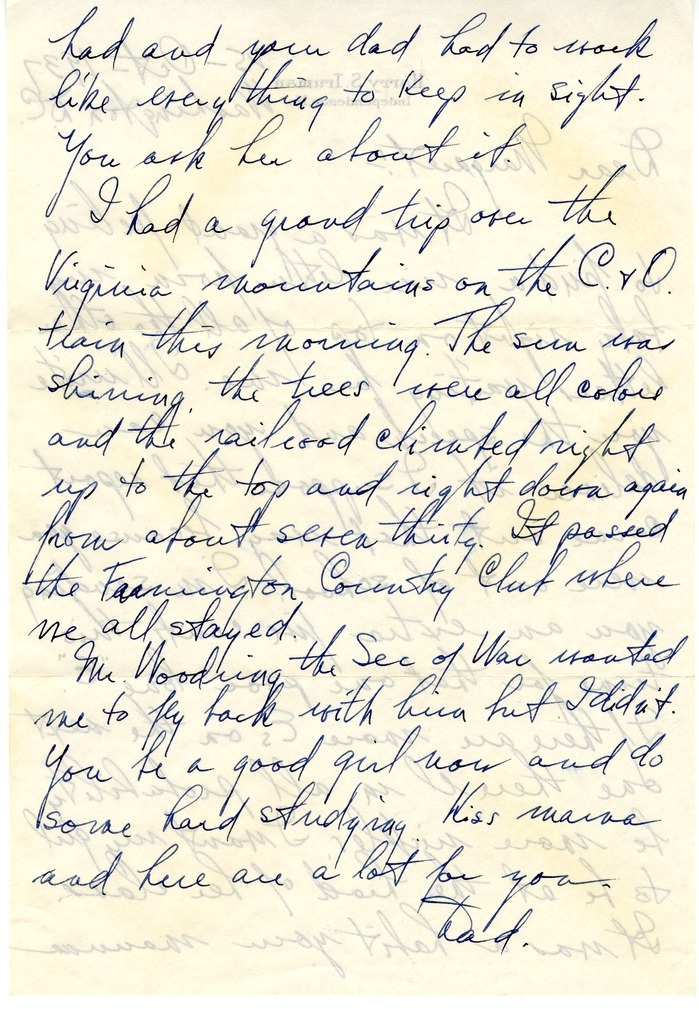 had and your dad had to work
like everything to keep in sight.
You ask her about it.
I had a grand trip over the
Virginia mountains on the C. & O.
train this morning. The sun was
shining, the trees were all colors
and the railroad climbed right
up to the top and right down again
from about seven thirty. It passed
the Farmington Country Club where
we all stayed.
Mr. Woodring the Sec of War wanted
me to fly back with him but I didn't.
You be a good girl now and do
some hard studying. Kiss mama
and here are a lot for you.
Dad.